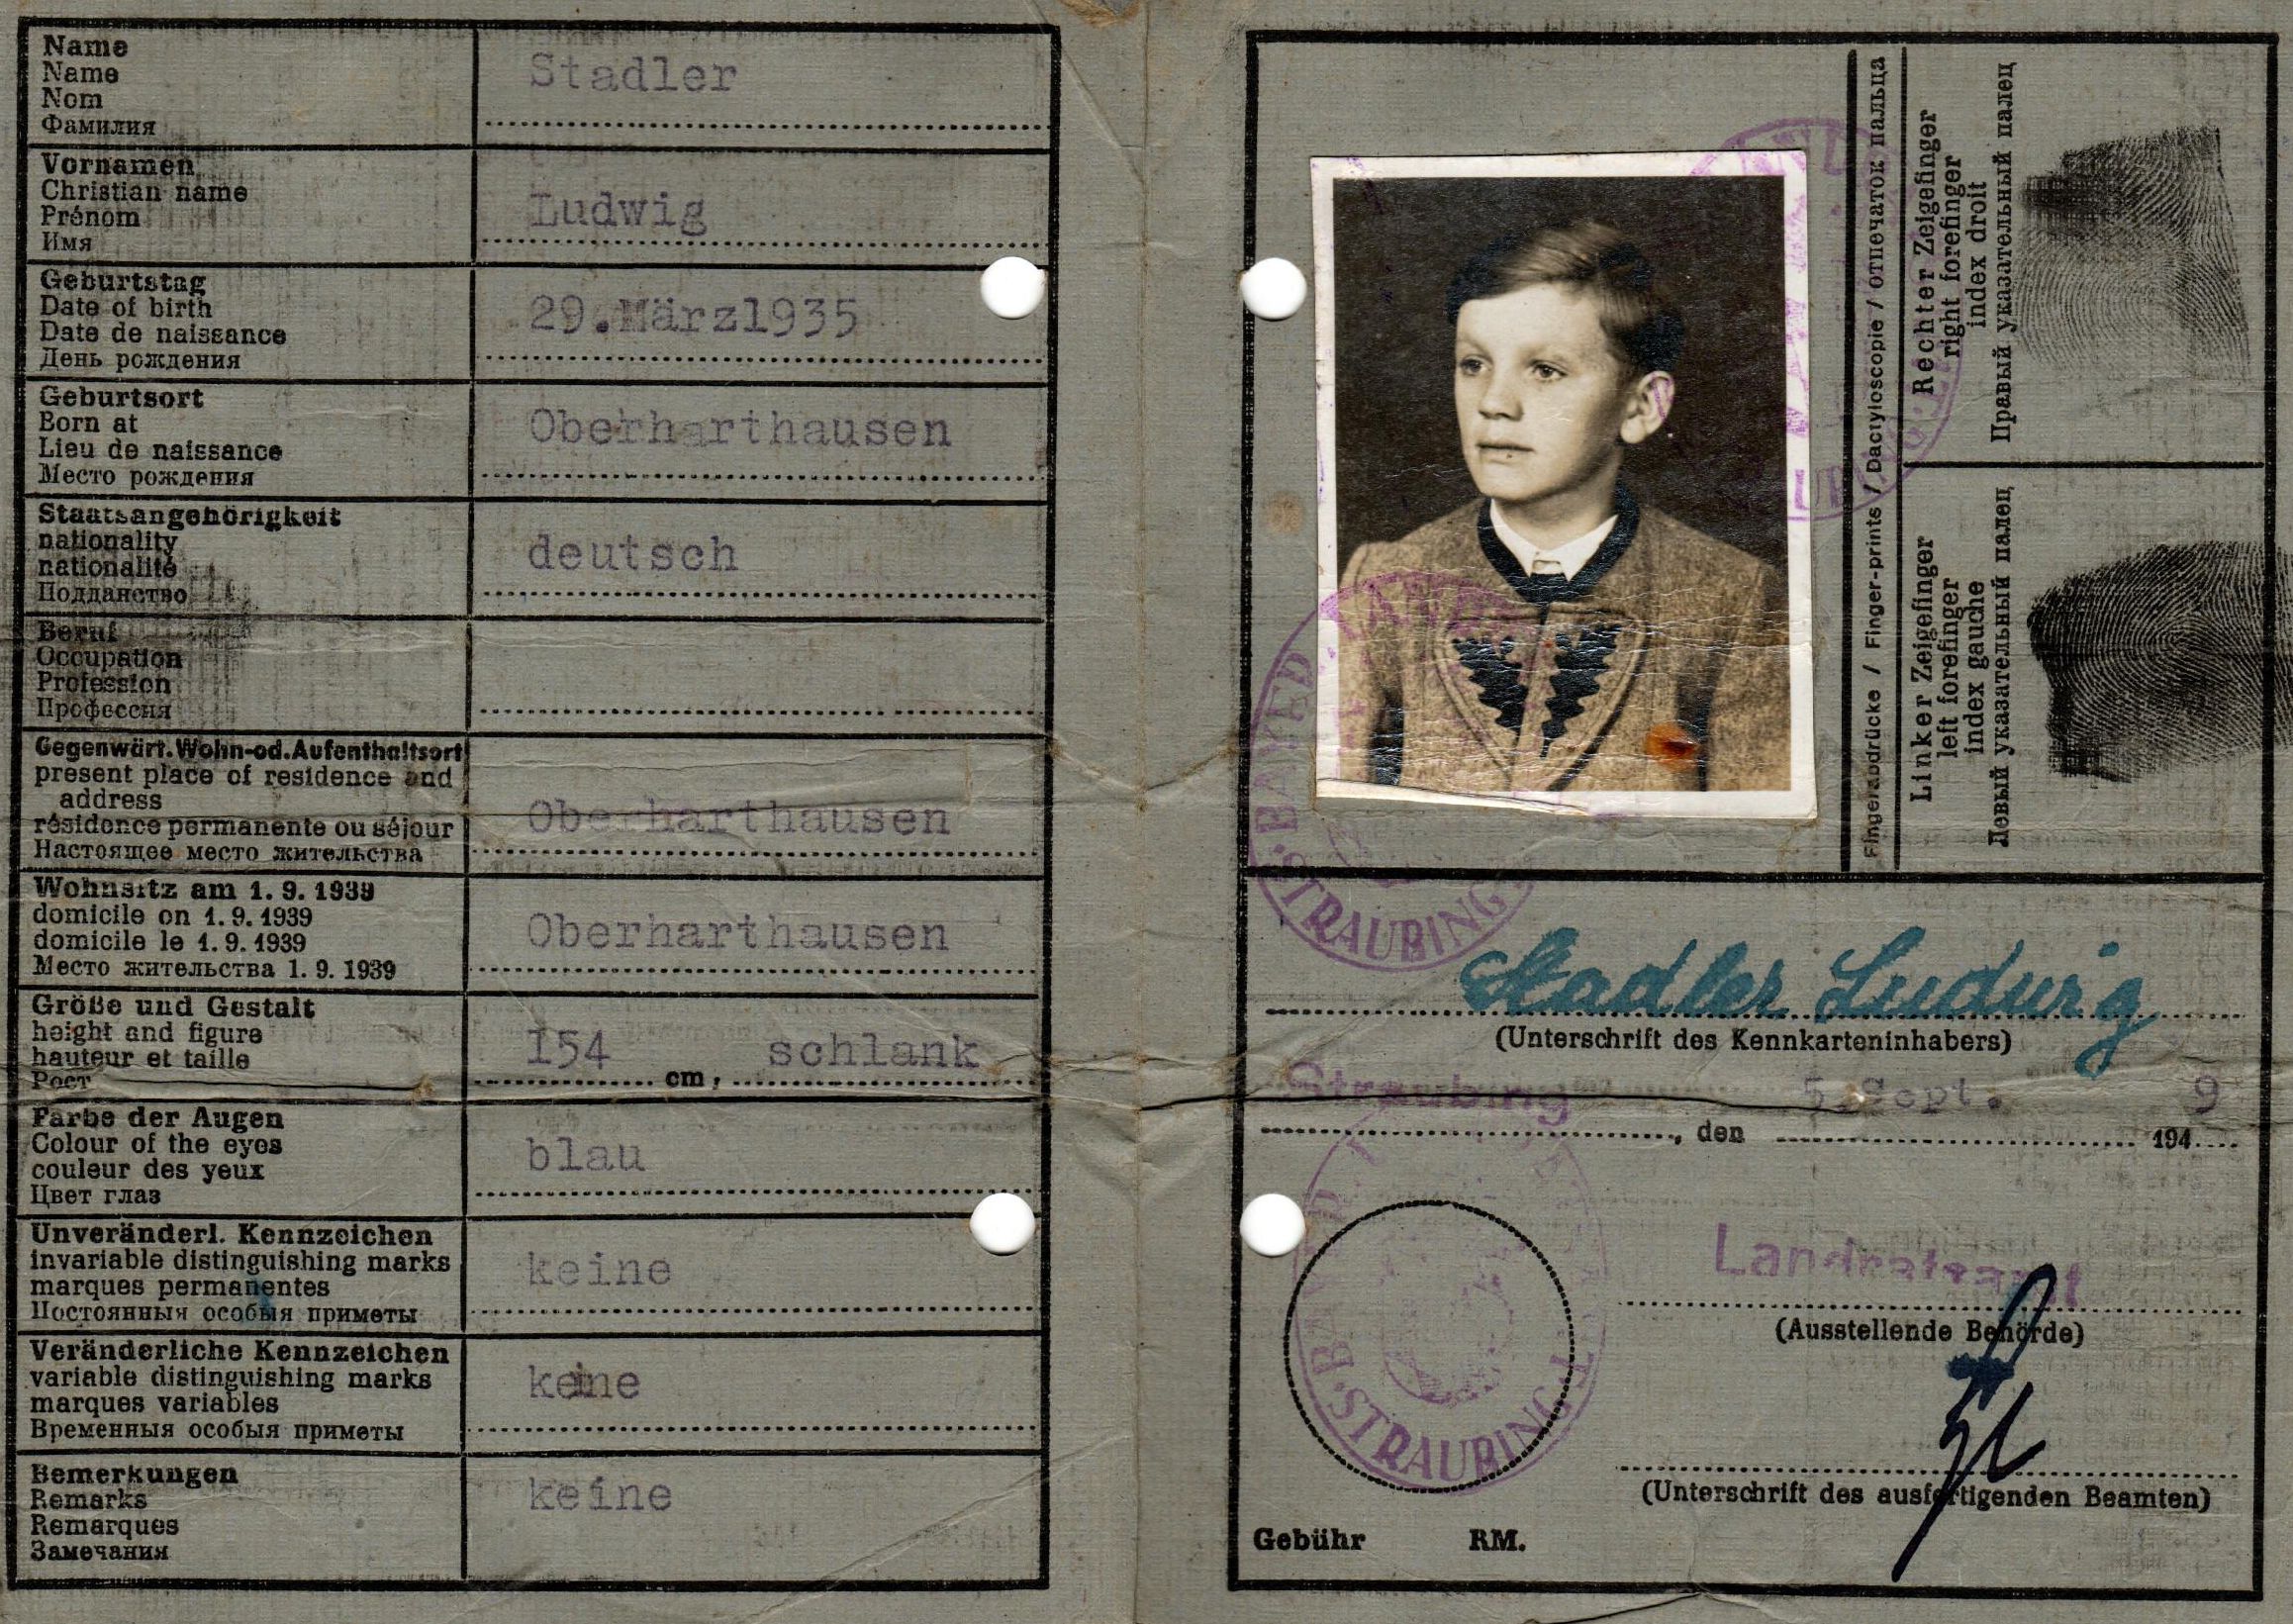 Name
Name
Nom
Фамилия
Stadler
Vornamen
Christian name
Prénom
Имя
Ludwig
Geburtstag
Date of birth
Date de naissance
День рождения
29.März1935
Geburtsort
Born at
Lieu de naissance
Место рождения
Oberharthausen
Staatsangehörigkeit
nationality
nationalité
Подданство
deutsch
Beruf
Occupation
Profession
Профессия
Gegenwärt.Wohn-od.Aufenthaltsort
present place of residence and
address
résidence permanente ou séjour
Настоящее место жительства
Oberharthausen
Wohnsitz am 1. 9. 1939
domicile on 1. 9. 1939
domicile le 1. 9. 1939
Место жительства 1. 9. 1939
Oberharthausen
Größe und Gestalt
height and figure
hauteur et taille
Рост
154 cm, schlank
Farbe der Augen
Colour of the eyes
couleur des yeux
Цвет глаз
blau
Unveränderl. Kennzeichen
invariable distinguishing marks
marques permanentes
Постоянныя особыя приметы
keine
Veränderliche Kennzeichen
variable distinguishing marks
marques variables
Временныя особыя приметы
keine
Bemerkungen
Remarks
Remarques
Замечания
keine
Fingerabdrücke / Finger-prints / Dactyloscopie / отпечаток пальца
Rechter Zeigefinger
right forefinger
index droit
Правый указательный палец
Linker Zeigefinger
left forefinger
index gauche
Левый указательный палец
STRAUBING
Stadler Ludwig
(Unterschrift des Kennkarteninhabers)
Straubing, den 5. Sept. 1949
Landratsamt
(Ausstellende Behörde)
STRAUBING
(Unterschrift des ausfertigenden Beamten)
Gebühr RM.